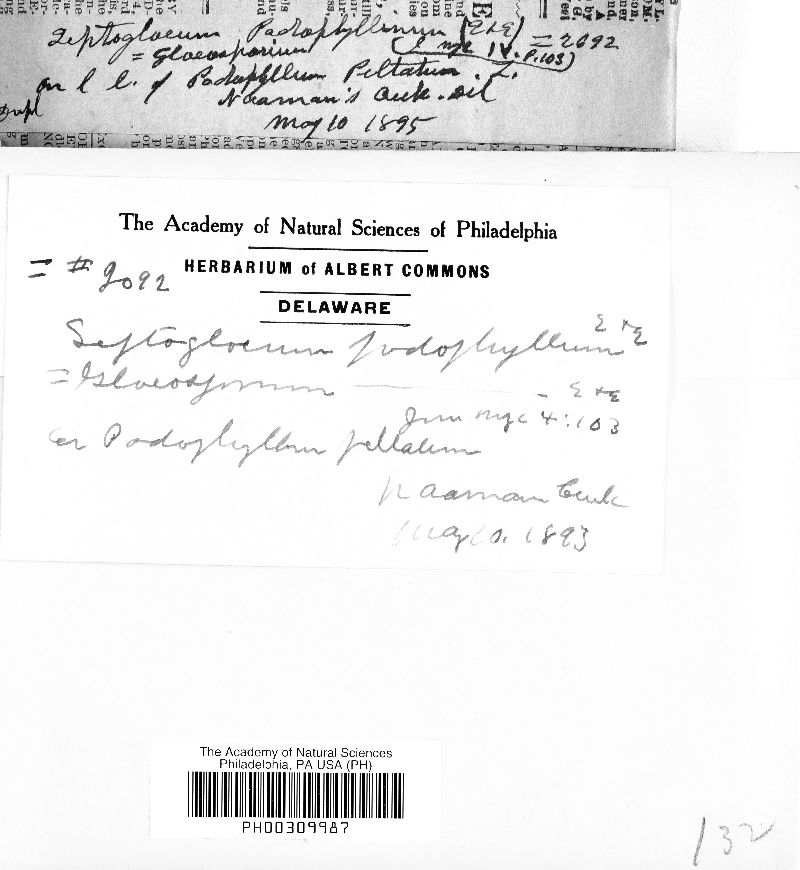 Septogloeum Podophyllinum (E&E) = 2092
= Gloeosporium (J myc IV. P. 103)
on l l. of Podophyllum Peltatum. L.
Dupl
Naaman's Creek. Del
May 10 1895
The Academy of Natural Sciences of Philadelphia
HERBARIUM of ALBERT COMMONS
= # 2092
DELAWARE
Septogloeum podophyllum E & E
= Gloeosporium — E & E
Jour Myc 4:103
on Podophyllum peltatum
Naaman Creek
May 10. 1893
The Academy of Natural Sciences
Philadelphia, PA USA (PH)
PH00309987
132